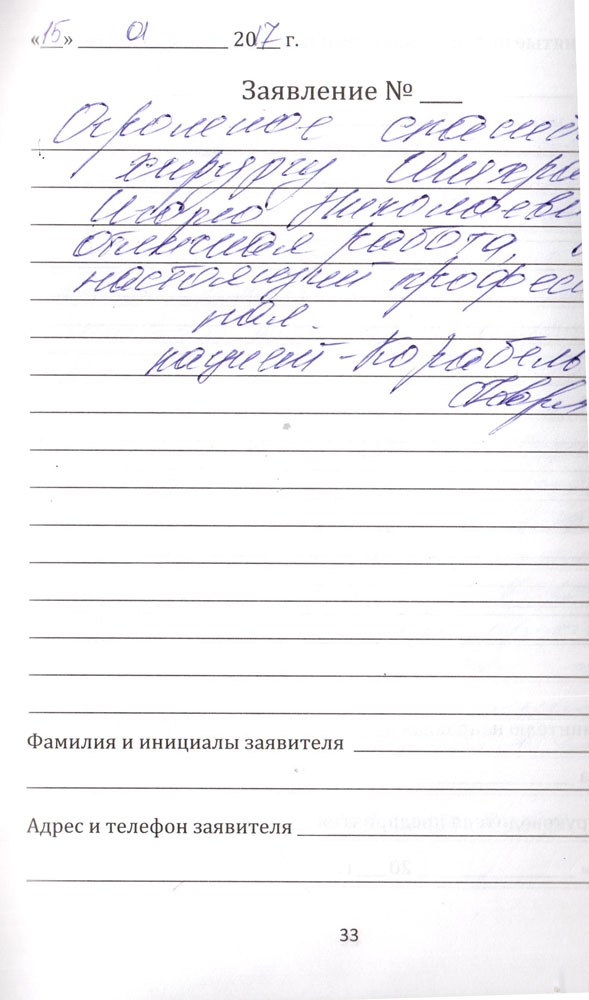 «15» 01 2017 г.
Заявление № ___
Огромное спасиб
хирургу
Игорю Николаеви
отличная работа,
настоящий професси
нал.
пациент - Корабель
Фамилия и инициалы заявителя
Адрес и телефон заявителя
33